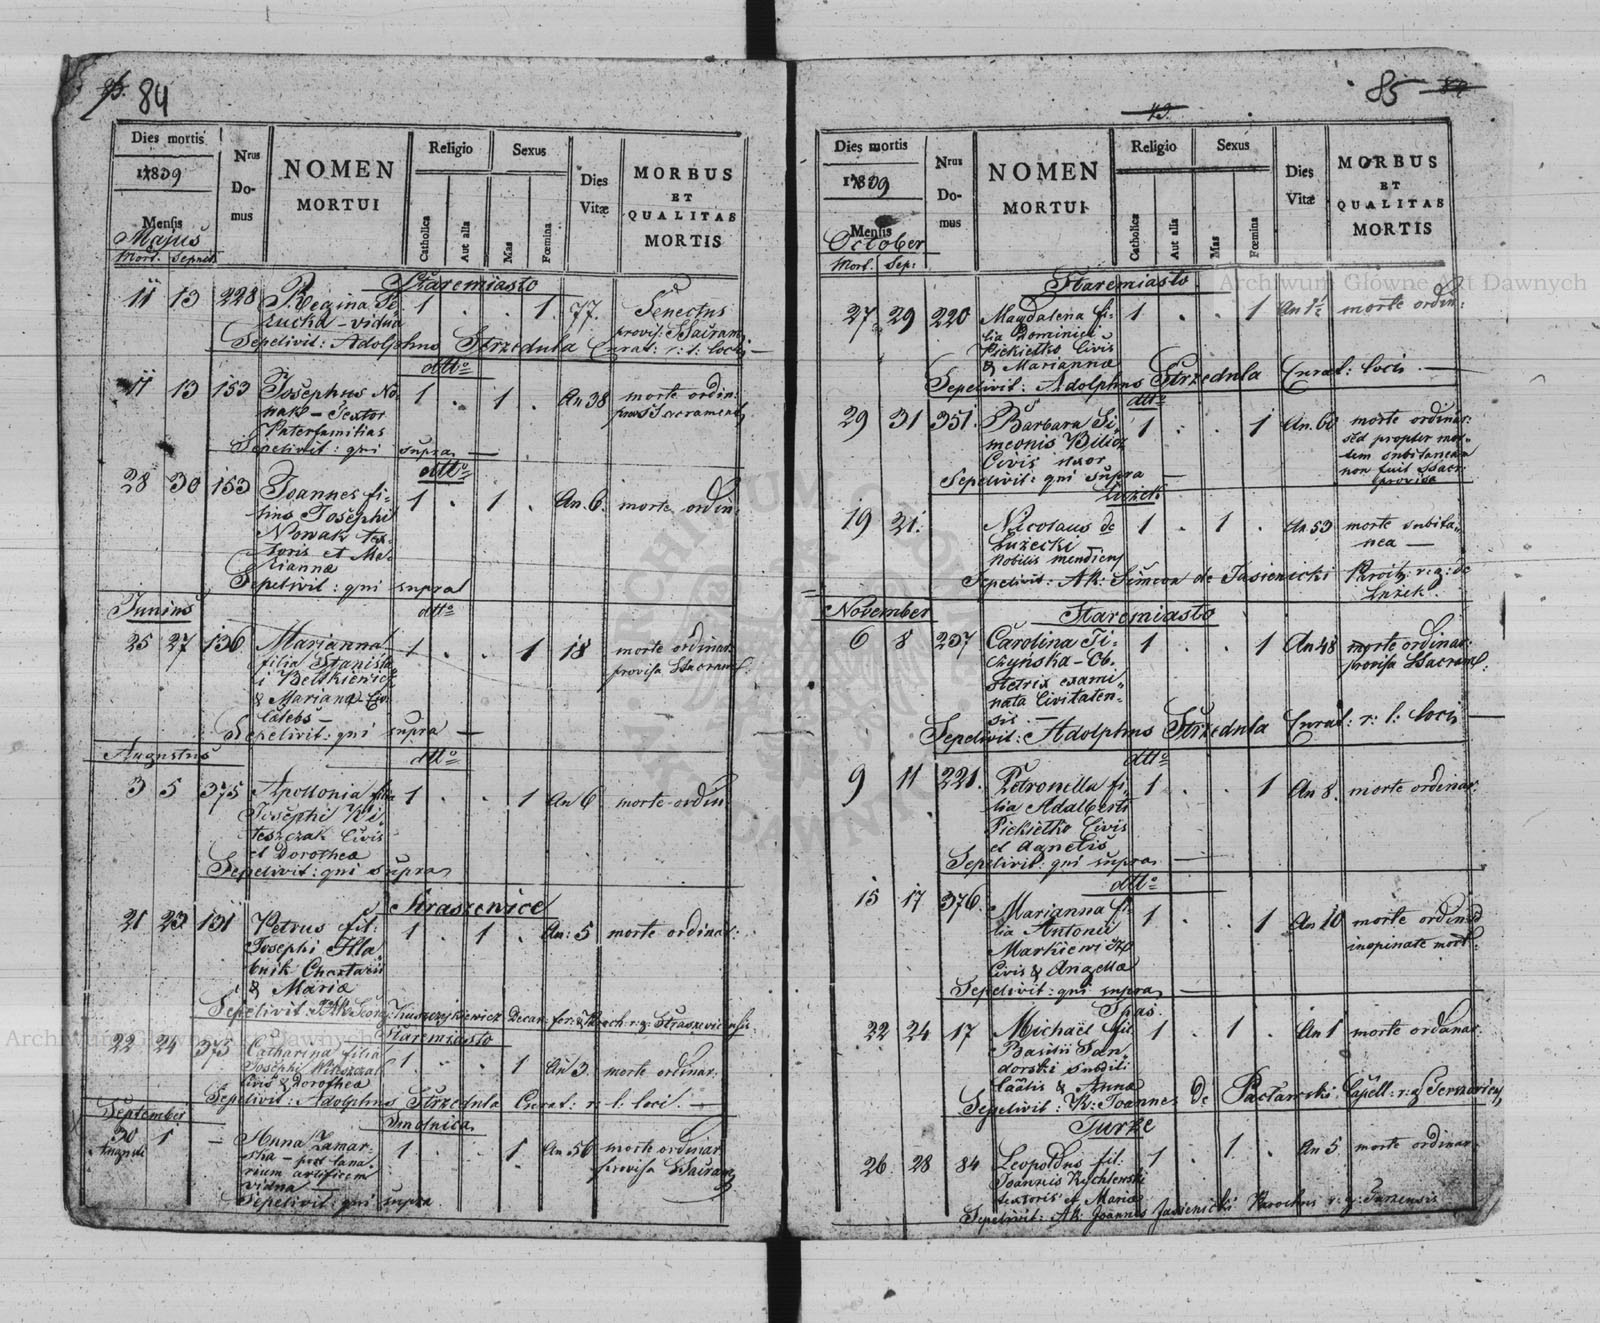 84
Dies mortis
1839
Mensis
Majus
Mort. Sepult.
Nrus
Do-
mus
NOMEN
MORTUI
Religio
Catholica
Aut alia
Sexus
Mas
Fœmina
Dies
Vitæ
MORBUS
ET
QUALITAS
MORTIS
Staremiasto
11 13 228 Regina
1 . . 1 77. Senectus
zucka – vidua
provis: SSacram:
Sepelivit: Adolphus Strzedula Curat: r: l: loci –
dtto
11 13 153 Josephus No-
1 . 1 . An 38 morte ordin:
wak – Textor
provis Sacrament:
Paterfamilias
Sepelivit: qui supra –
dtto
28 30 153 Joannes fi-
1 . 1 . An 6. morte ordin:
lius Josephi
Nowak tex-
toris et Ma-
riannæ
Sepelivit: qui supra
Junius
dtto
25 27 136 Marianna
1 . . 1 18 morte ordinar:
filia Stanisla-
provisa SSacram:
i
& Marianæ
Cælebs –
Sepelivit: qui supra –
Augustus
dtto
3 5 375 Apollonia filia
1 . . 1 An 6 morte ordin:
Josephi Ki-
teszczak Civis
et Dorotheæ
Sepelivit: qui supra
Straszewice
21 23 131 Petrus fil:
1 . 1 . An: 5 morte ordinar:
Josephi Hla-
& Mariæ
Sepelivit: Decan: for: & Paroch: r: g: Straszevicensis
Staremiasto
22 24 375 Catharina filia
1 . . 1 An 3. morte ordinar:
Josephi
Civis & Dorotheæ
Sepelivit: Adolphus Strzedula Curat: r: l: loci. –
September
Smolnica
30 1 – Anna Zamar-
1 . . 1 An 56 morte ordinar
Augusti
ska – post lana-
provisa SSacram:
rium artificem
vidua –
Sepelivit: qui supra
85
49.
Dies mortis
1839
Mensis
October
Mort. Sep:
Nrus
Do-
mus
NOMEN
MORTUI
Religio
Catholica
Aut alia
Sexus
Mas
Fœmina
Dies
Vitæ
MORBUS
ET
QUALITAS
MORTIS
Staremiasto
27 29 220 Magdalena fi-
1 . . 1 morte ordin:
lia Dominici
Pickietko Civis
& Mariannæ
Sepelivit: Adolphus Strzedula Curat: loci. –
dtto
29 31 351. Barbara Si-
1 . . 1 An. 60 morte ordinar:
meonis Bilicz
sed propter mor-
Civis uxor
tem subitaneam
Sepelivit: qui supra –
non fuit SSacr:
provisa
Łużek
19 21. Nicolaus de
1 . 1 . An 53 morte subita-
Łużecki
nea –
Nobilis mendicus
Sepelivit: Ak: Simeon de Jasienicki Paroch: r: g: de
Łużek.
November
Staremiasto
6 8 237 Carolina Ti-
1 . . 1 An 48 morte ordinar:
czyńska – Ob-
provisa SSacram:
stetrix exami-
nata Civitaten-
sis. –
Sepelivit: Adolphus Strzedula Curat: r: l: loci –
dtto
9 11 221. Petronella fi-
1 . . 1 An 8. morte ordinar:
lia Adalberti
Pickietko Civis
et Agnetis
Sepelivit: qui supra –
dtto
15 17 376. Marianna fi-
1 . . 1 An 10 morte ordin: sed
lia Antonii
inopinate mort:
Markiewicz
Civis & Angellæ
Sepelivit: qui supra –
Spas.
22 24 17 Michaël fil
1 . 1 . An 1 morte ordinar:
Basilii San-
dorski subditi
& Annæ
Sepelivit: R: Joannes de Pacławski Capell: r: g:
Turze
26 28 84 Leopoldus fil:
1 . 1 . An 5 morte ordinar:
Joannis Rychlenski
textoris et Mariæ
Sepelivit: Ak: Joannes Jasienicki Parochus r: g: Turzensis
Archiwum Główne Akt Dawnych
Archiwum Główne Akt Dawnych
ARCHIWUM GŁÓWNE AKT DAWNYCH